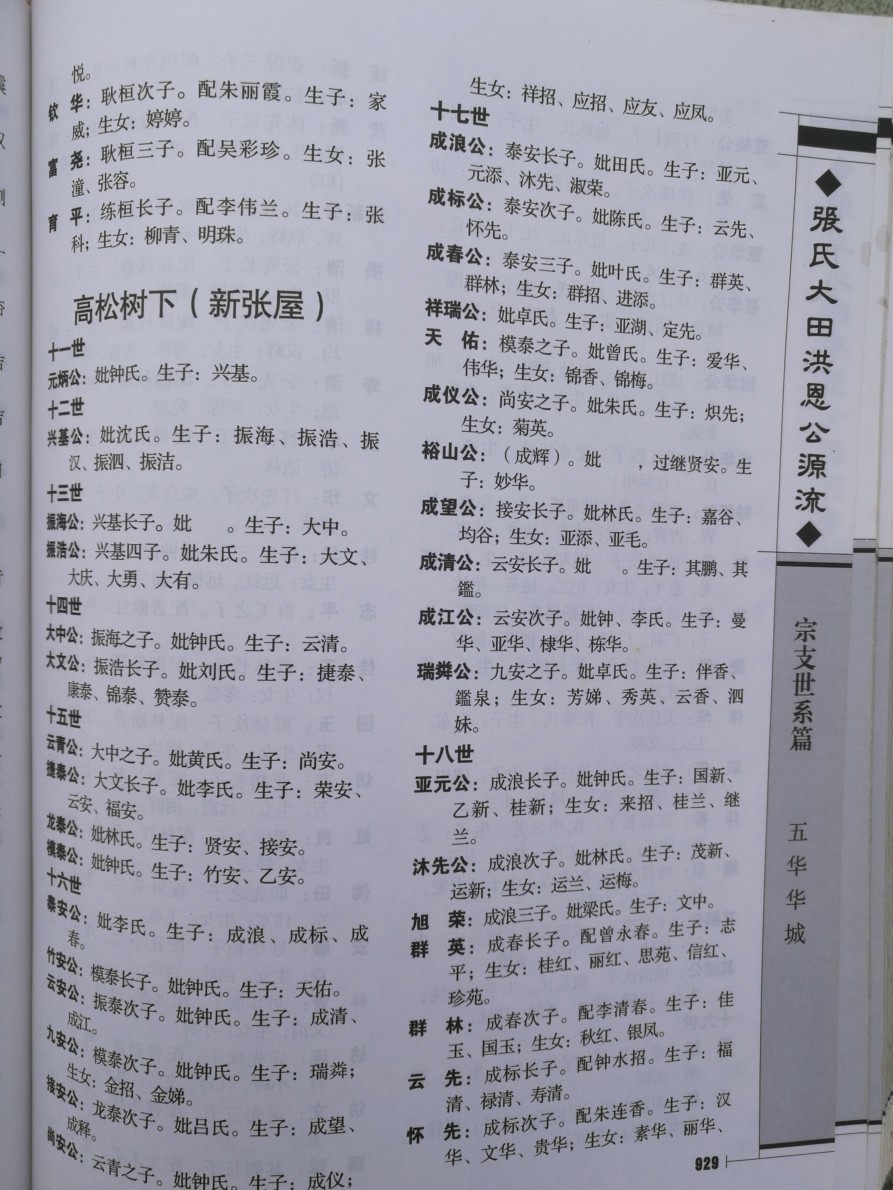 悦。
钦华：耿桓次子。配朱丽霞。生子：家
威；生女：婷婷。
富尧：耿桓三子。配吴彩珍。生女：张
潼、张容。
育平：练桓长子。配李伟兰。生子：张
科；生女：柳青、明珠。
高松树下（新张屋）
十一世
元炳公：妣钟氏。生子：兴基。
十二世
兴基公：妣沈氏。生子：振海、振浩、振
汉、振泗、振洁。
十三世
振海公：兴基长子。妣　　。生子：大中。
振浩公：兴基四子。妣朱氏。生子：大文、
大庆、大勇、大有。
十四世
大中公：振海之子。妣钟氏。生子：云清。
大文公：振浩长子。妣刘氏。生子：捷泰、
康泰、锦泰、赞泰。
十五世
云青公：大中之子。妣黄氏。生子：尚安。
捷泰公：大文长子。妣李氏。生子：荣安、
云安、福安。
龙泰公：妣林氏。生子：贤安、接安。
模泰公：妣钟氏。生子：竹安、乙安。
十六世
泰安公：妣李氏。生子：成浪、成标、成
春。
竹安公：模泰长子。妣钟氏。生子：天佑。
云安公：振泰次子。妣钟氏。生子：成清、
成江。
九安公：模泰次子。妣钟氏。生子：瑞粦；
生女：金招、金娣。
接安公：龙泰次子。妣吕氏。生子：成望、
成释。
尚安公：云青之子。妣钟氏。生子：成仪；
生女：祥招、应招、应友、应凤。
十七世
成浪公：泰安长子。妣田氏。生子：亚元、
元添、沐先、淑荣。
成标公：泰安次子。妣陈氏。生子：云先、
怀先。
成春公：泰安三子。妣叶氏。生子：群英、
群林；生女：群招、进添。
祥瑞公：妣卓氏。生子：亚湖、定先。
天佑：模泰之子。妣曾氏。生子：爱华、
伟华；生女：锦香、锦梅。
成仪公：尚安之子。妣朱氏。生子：炽先；
生女：菊英。
裕山公：（成辉）。妣　　，过继贤安。生
子：妙华。
成望公：接安长子。妣林氏。生子：嘉谷、
均谷；生女：亚添、亚毛。
成清公：云安长子。妣　　。生子：其鹏、其
鑑。
成江公：云安次子。妣钟、李氏。生子：曼
华、亚华、棣华、栋华。
瑞粦公：九安之子。妣卓氏。生子：伴香、
鑑泉；生女：芳娣、秀英、云香、泗
妹。
十八世
亚元公：成浪长子。妣钟氏。生子：国新、
乙新、桂新；生女：来招、桂兰、继
兰。
沐先公：成浪次子。妣林氏。生子：茂新、
运新；生女：运兰、运梅。
旭荣：成浪三子。妣梁氏。生子：文中。
群英：成春长子。配曾永春。生子：志
平；生女：桂红、丽红、思苑、信红、
珍苑。
群林：成春次子。配李清春。生子：佳
玉、国玉；生女：秋红、银凤。
云先：成标长子。配钟水招。生子：福
清、禄清、寿清。
怀先：成标次子。配朱连香。生子：汉
华、文华、贵华；生女：素华、丽华、
929
◆張氏大田洪恩公源流◆
宗支世系篇
五华华城